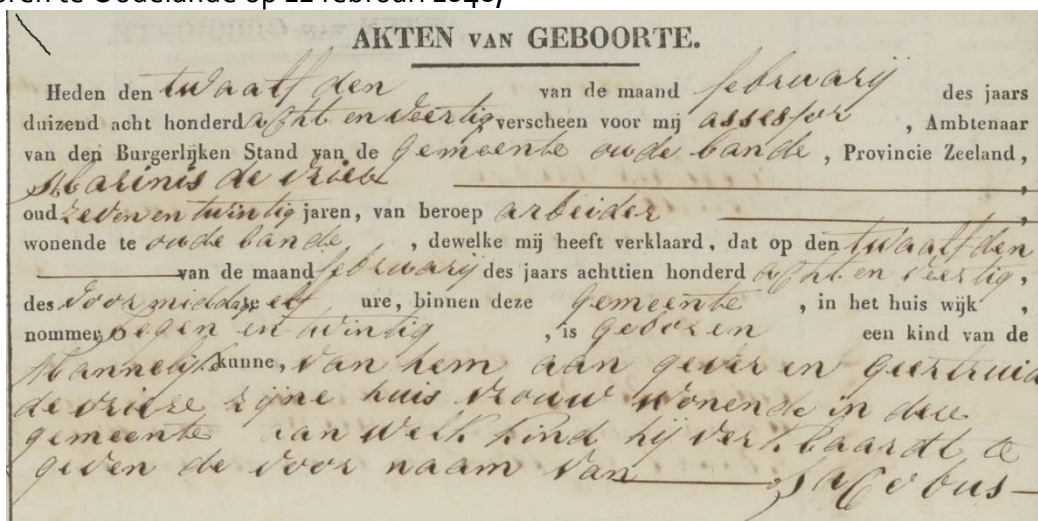 te Oudelande op 12 februari 1848)
AKTEN VAN GEBOORTE.
Heden den twaalfden van de maand februarij des jaars
duizend acht honderd acht en veertig, verscheen voor mij assessor, Ambtenaar
van den Burgerlijken Stand van de gemeente oude lande, Provincie Zeeland,
Marinis de vriese,
oud zeven en twintig jaren, van beroep arbeider,
wonende te oude lande, dewelke mij heeft verklaard, dat op den twaalfden
van de maand februarij des jaars achttien honderd acht en veertig,
des voormiddags elf ure, binnen deze gemeente, in het huis wijk ,
nommer negen en twintig, is geboren een kind van de
Mannelijke kunne, van hem aan gever en geertruid
de vriese zijne huis vrouw wonende in dese
gemeente aan welk kind hij verklaardt te
geven de voor naam van Jacobus